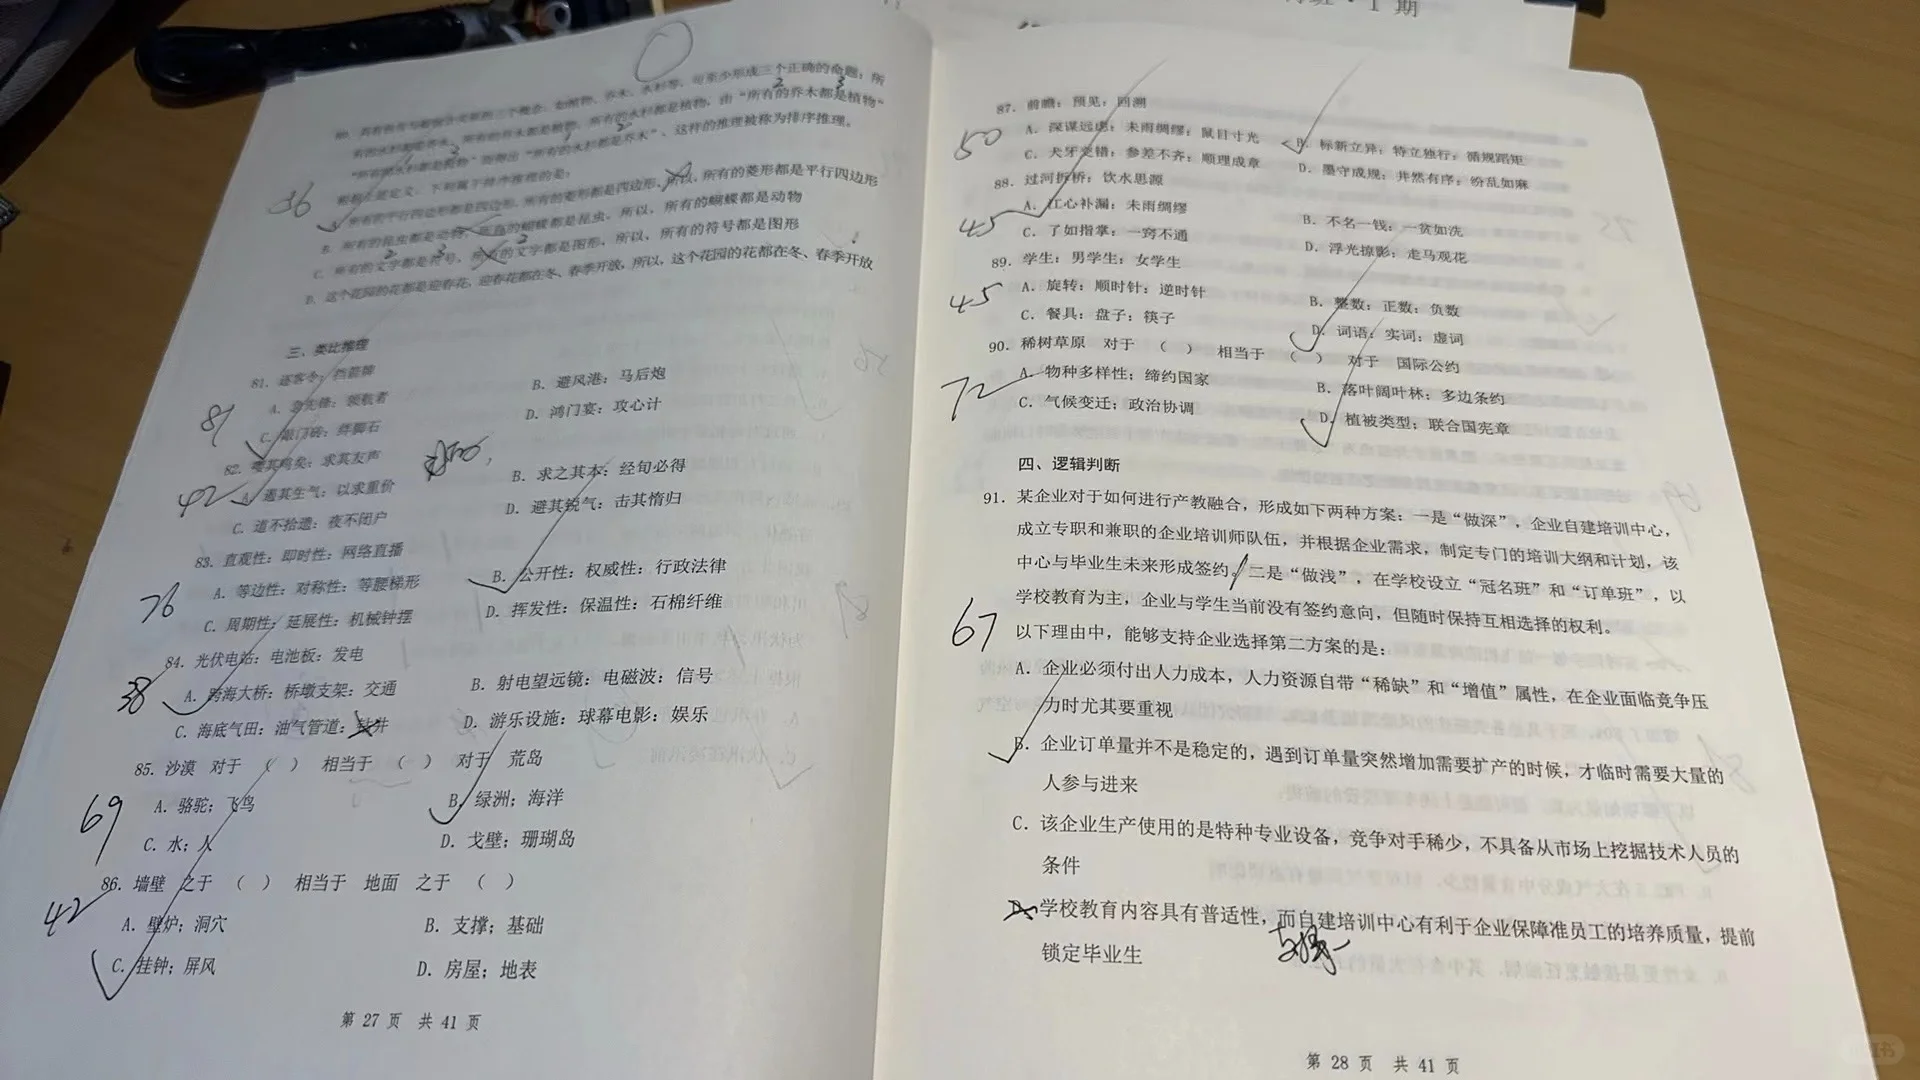 班·1期
80. 具有包含与被包含关系的三个概念,如植物、乔木、水杉等,可至少形成三个正确的命题:所
有的水杉都是乔木,所有的乔木都是植物,所有的水杉都是植物,由“所有的乔木都是植物”
“所有的水杉都是植物”而得出“所有的水杉都是乔木”,这样的推理被称为排序推理。
根据上述定义,下列属于排序推理的是:
36
A. 所有的平行四边形都是四边形,所有的菱形都是四边形,所以,所有的菱形都是平行四边形
B. 所有的昆虫都是动物,所有的蝴蝶都是昆虫,所以,所有的蝴蝶都是动物
C. 所有的文字都是符号,所有的文字都是图形,所以,所有的符号都是图形
D. 这个花园的花都是迎春花,迎春花都在冬、春季开放,所以,这个花园的花都在冬、春季开放
三、类比推理
81. 逐客令:挡箭牌
A. 急先锋:领航者
B. 避风港:马后炮
81
C. 敲门砖:绊脚石
D. 鸿门宴:攻心计
82. 嘤其鸣矣:求其友声
42
A. 遏其生气:以求重价
B. 求之其本:经旬必得
C. 道不拾遗:夜不闭户
D. 避其锐气:击其惰归
83. 直观性:即时性:网络直播
76
A. 等边性:对称性:等腰梯形
B. 公开性:权威性:行政法律
C. 周期性:延展性:机械钟摆
D. 挥发性:保温性:石棉纤维
84. 光伏电站:电池板:发电
38
A. 跨海大桥:桥墩支架:交通
B. 射电望远镜:电磁波:信号
C. 海底气田:油气管道:钻井
D. 游乐设施:球幕电影:娱乐
85. 沙漠 对于 ( ) 相当于 ( ) 对于 荒岛
69
A. 骆驼;飞鸟
B. 绿洲;海洋
C. 水;人
D. 戈壁;珊瑚岛
86. 墙壁 之于 ( ) 相当于 地面 之于 ( )
42
A. 壁炉;洞穴
B. 支撑;基础
C. 挂钟;屏风
D. 房屋;地表
第 27 页 共 41 页
87. 前瞻:预见:回溯
50
A. 深谋远虑:未雨绸缪:鼠目寸光
B. 标新立异:特立独行:循规蹈矩
C. 犬牙交错:参差不齐:顺理成章
D. 墨守成规:井然有序:纷乱如麻
88. 过河拆桥:饮水思源
45
A. 江心补漏:未雨绸缪
B. 不名一钱:一贫如洗
C. 了如指掌:一窍不通
D. 浮光掠影:走马观花
89. 学生:男学生:女学生
45
A. 旋转:顺时针:逆时针
B. 整数:正数:负数
C. 餐具:盘子:筷子
D. 词语:实词:虚词
90. 稀树草原 对于 ( ) 相当于 ( ) 对于 国际公约
72
A. 物种多样性;缔约国家
B. 落叶阔叶林;多边条约
C. 气候变迁;政治协调
D. 植被类型;联合国宪章
四、逻辑判断
91. 某企业对于如何进行产教融合,形成如下两种方案:一是“做深”,企业自建培训中心,
成立专职和兼职的企业培训师队伍,并根据企业需求,制定专门的培训大纲和计划,该
中心与毕业生未来形成签约。二是“做浅”,在学校设立“冠名班”和“订单班”,以
学校教育为主,企业与学生当前没有签约意向,但随时保持互相选择的权利。
67
以下理由中,能够支持企业选择第二方案的是:
A. 企业必须付出人力成本,人力资源自带“稀缺”和“增值”属性,在企业面临竞争压
力时尤其要重视
B. 企业订单量并不是稳定的,遇到订单量突然增加需要扩产的时候,才临时需要大量的
人参与进来
C. 该企业生产使用的是特种专业设备,竞争对手稀少,不具备从市场上挖掘技术人员的
条件
D. 学校教育内容具有普适性,而自建培训中心有利于企业保障准员工的培养质量,提前
锁定毕业生
支持一
第 28 页 共 41 页